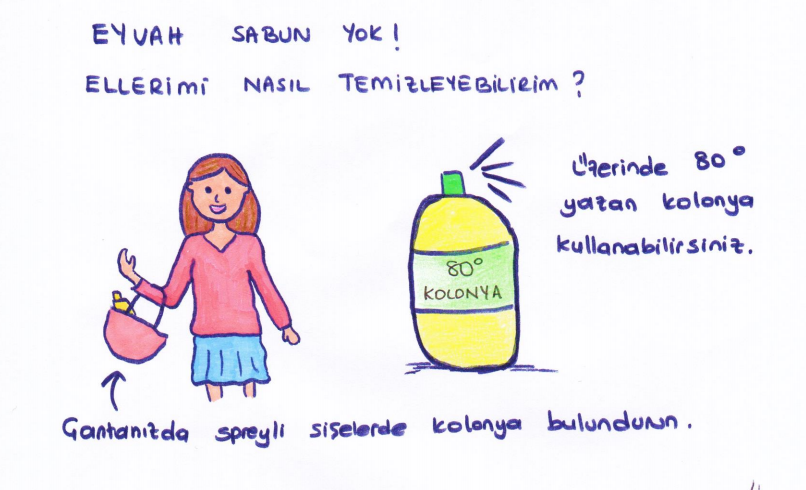 EYVAH SABUN YOK!
ELLERİMİ NASIL TEMİZLEYEBİLİRİM?
Üzerinde 80°
yazan kolonya
kullanabilirsiniz.
80°
KOLONYA
Çantanızda spreyli şişelerde kolonya bulundurun.